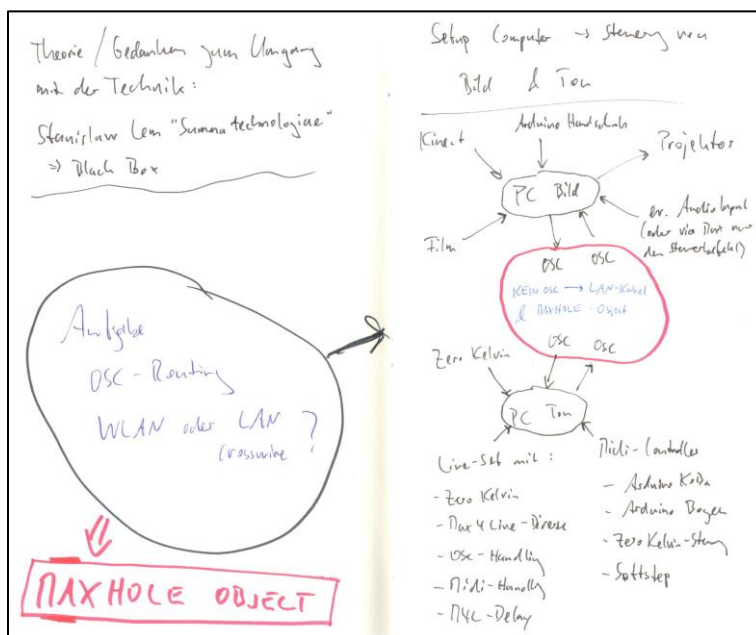 Theorie / Gedanken zum Umgang
mit der Technik:
Stanislaw Lem "Summa technologiae"
⇒ Black Box
Aufgabe
OSC-Routing
WLAN oder LAN ?
Crosswire
MAXHOLE OBJECT
Setup Computer → Steuerung von
Bild & Ton
Kinect
Arduino Handschuh
Projektor
PC Bild
Film
ev. Audio Input
(oder via Max nur
den Steuerbefehl)
OSC OSC
KEIN OSC → LAN-Kabel
& MAXHOLE-Object
OSC OSC
Zero Kelvin
PC Ton
Live-Set mit:
- Zero Kelvin
- Max 4 Live-Diverse
- OSC-Handling
- Midi-Handling
- M4L-Delay
Midi-Controller
- Arduino
- Arduino Bogen
- Zero Kelvin-
- Softstep